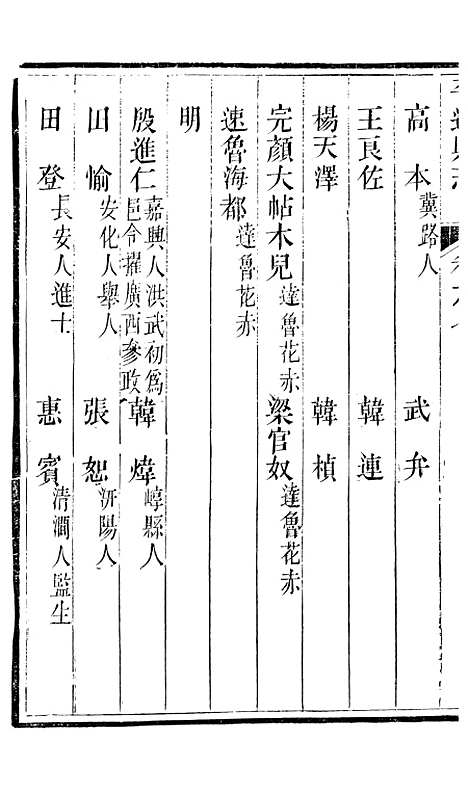 高本冀路人 武弁
王良佐 韓連
楊天澤 韓楨
完顏大帖木兒達魯花赤 梁官奴達魯花赤
速魯海都達魯花赤
明
殷進仁嘉興人洪武初爲邑令擢廣西參政 韓煒崞縣人
田愉安化人舉人 張恕汧陽人
田登長安人進士 惠賓清澗人監生